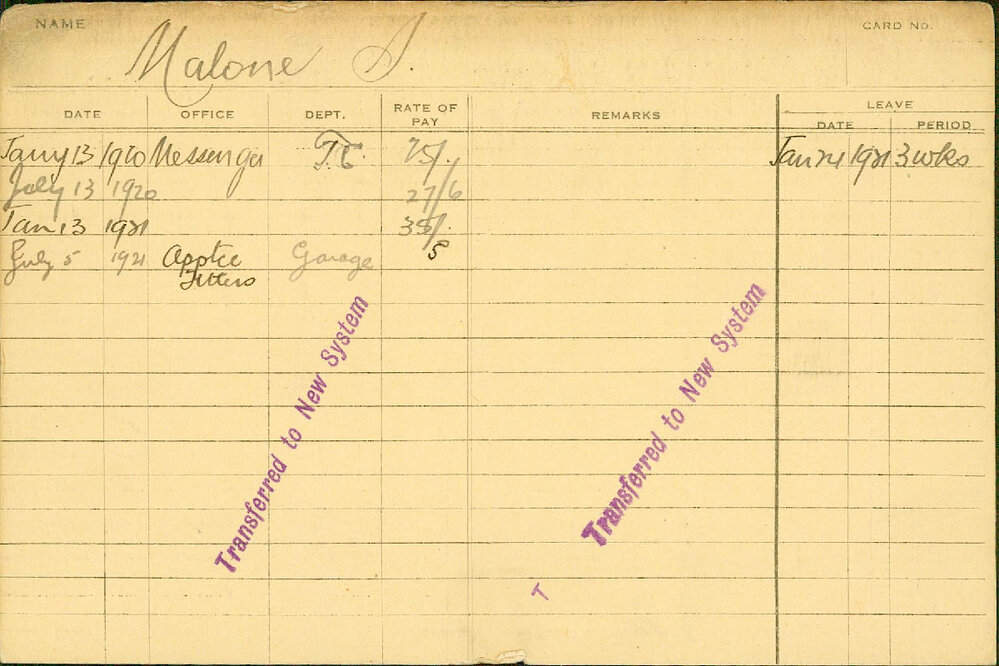 NAME Malone S. CARD No.
DATE OFFICE DEPT. RATE OF PAY REMARKS LEAVE
DATE PERIOD
Jany 13 1920 Messenger T.C. 25/. Jan 24 1921 3 wks
July 13 1920 27/6
Jan 13 1921 35/.
July 5 1921 Apptce Garage 5
Fitters
Transferred to New System
Transferred to New System
T